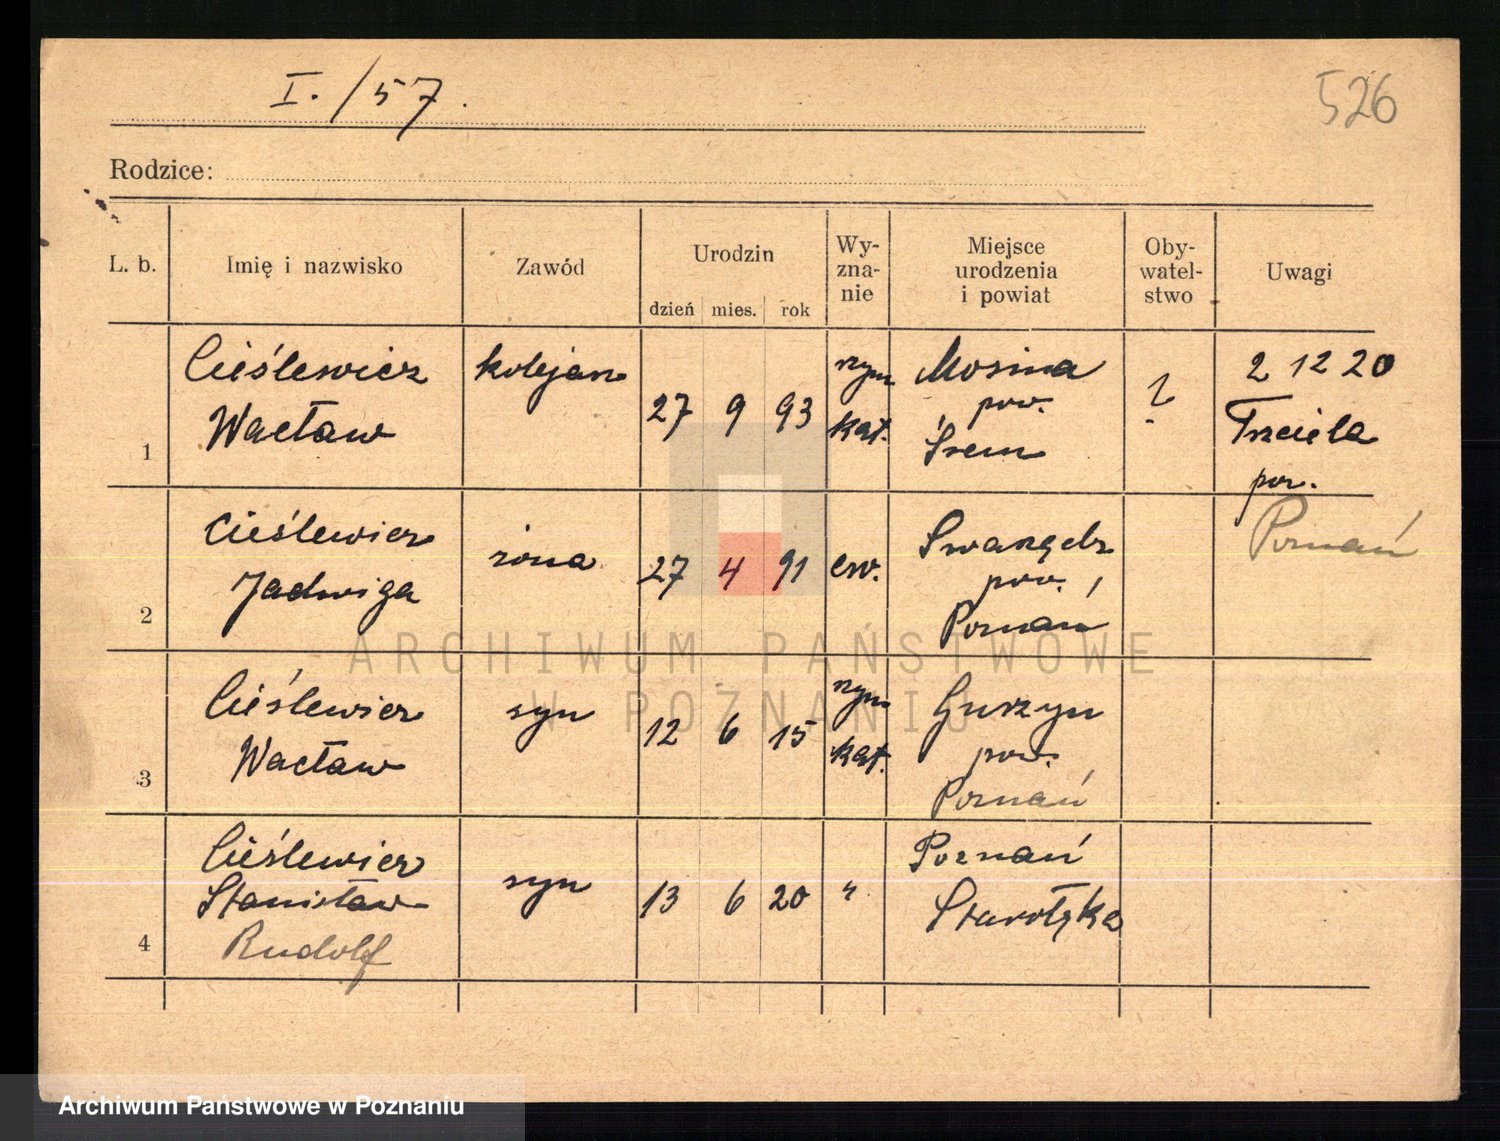 I. / 57.
526
Rodzice:
L. b.
Imię i nazwisko
Zawód
Urodzin
dzień mies. rok
Wy-
zna-
nie
Miejsce
urodzenia
i powiat
Oby-
watel-
stwo
Uwagi
1
Cieślewicz
Wacław
kolejarz
27 9 93
rzym
kat.
Mosina
pow.
Śrem
?
2 12 20
Trzciela
por.
Poznań
2
Cieślewicz
Jadwiga
żona
27 4 91
ew.
pow.
Poznań
3
Cieślewicz
Wacław
syn
12 6 15
rzym
kat.
Gurzyn
pow.
Poznań
4
Cieślewicz
Stanisław
Rudolf
syn
13 6 20
"
Poznań
Starołęka
ARCHIWUM PAŃSTWOWE
W POZNANIU
Archiwum Państwowe w Poznaniu